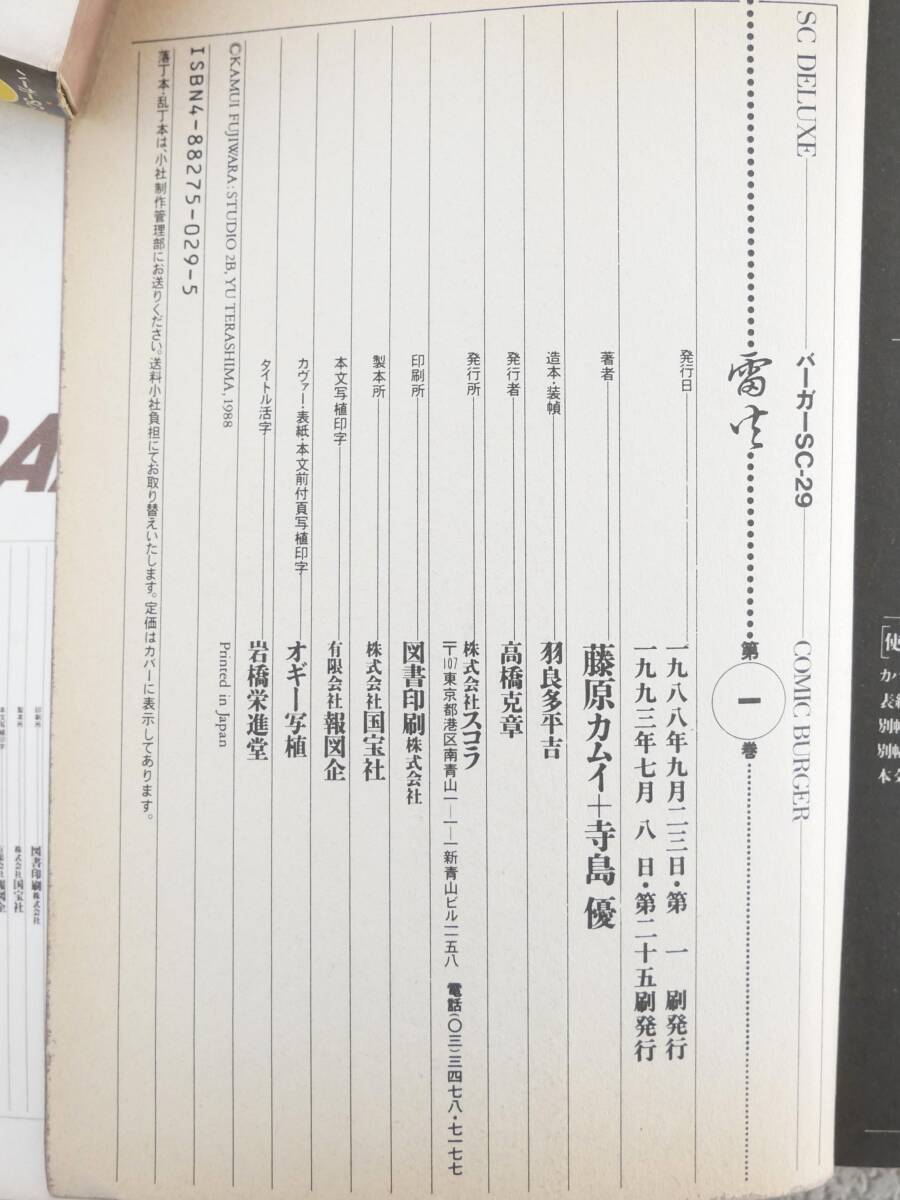 SC DELUXE
バーガーSC-29
COMIC BURGER
雷火
第一巻
発行日
一九八八年九月二三日・第 一 刷発行
一九九三年七月 八 日・第二十五刷発行
著者
藤原カムイ+寺島 優
造本・装幀
羽良多平吉
発行者
高橋克章
発行所
株式会社スコラ
〒107東京都港区南青山一―一―一新青山ビル一一五八
電話(〇三)三四七八・七一七七
印刷所
図書印刷株式会社
製本所
株式会社国宝社
本文写植印字
有限会社報図企
カヴァー・表紙・本文前付頁写植印字
オギー写植
タイトル活字
岩橋栄進堂
©KAMUI FUJIWARA: STUDIO 2B, YU TERASHIMA, 1988
Printed in Japan
ISBN4-88275-029-5
落丁本・乱丁本は、小社制作管理部にお送りください。送料小社負担にてお取り替えいたします。定価はカバーに表示してあります。
印刷所
図書印刷株式会社
製本所
株式会社国宝社
本文写植印字